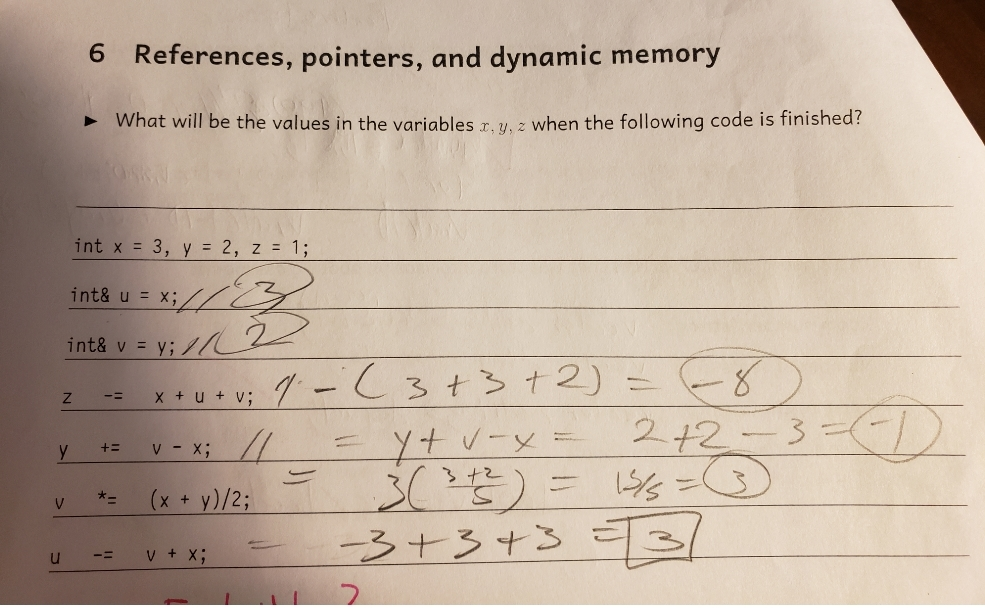 6 References, pointers, and dynamic memory
► What will be the values in the variables x, y, z when the following code is finished?
int x = 3, y = 2, z = 1;
int& u = x; // 3
int& v = y; // 2
z -= x + u + v; 1 - (3+3+2) = -8
y += v - x; // = y+v-x = 2+2-3 = -1
v *= (x + y)/2; = 3(3+2/5) = 15/5 = 3
u -= v + x; = -3+3+3 = 3